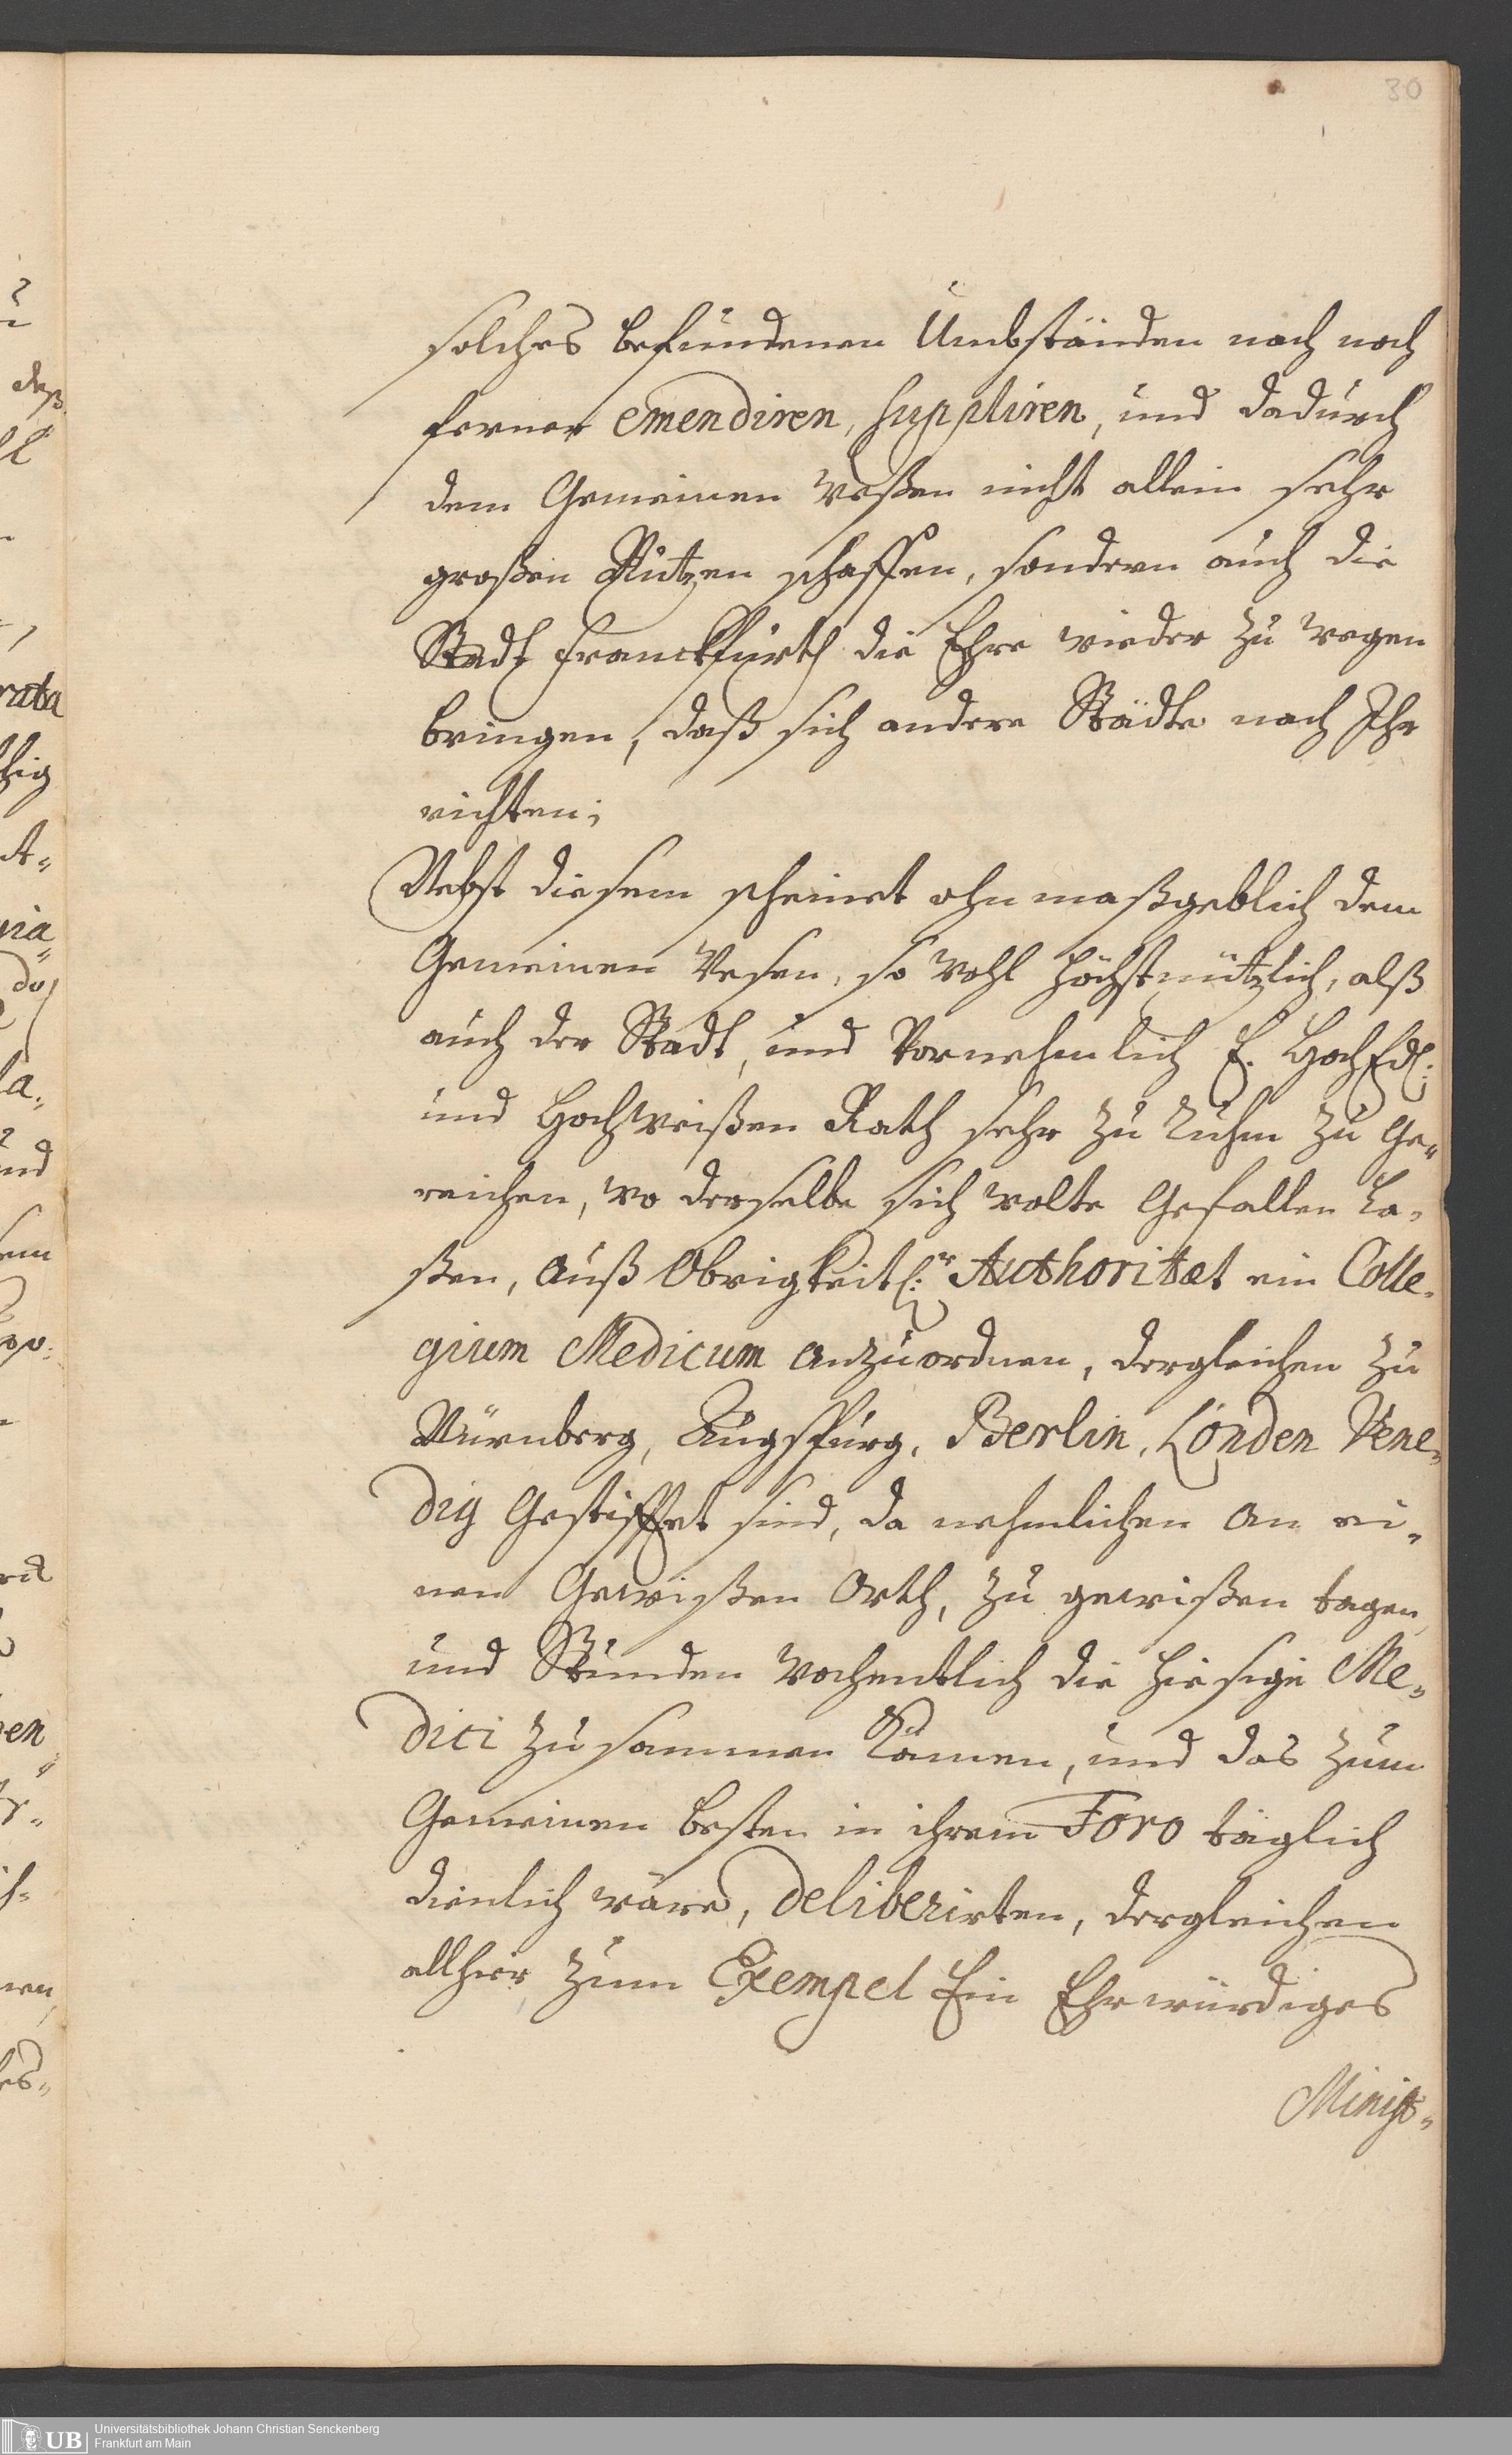 30
solches befundenen Umbständen nach noch
ferner emendiren, suppliren, und dadurch
dem Gemeinen Weßen nicht allein sehr
großen Nutzen schaffen, sondern auch die
Stadt Franckfurth die Ehre wieder zu wegen
bringen, daß sich andere Städte nach Ihr
richten;
Nebst diesem scheinet ohnmaßgeblich dem
Gemeinen Wesen, so wohl höchstnützlich, alß
auch der Stadt, und Vornehmlich E. HochEdl:
und Hochweißen Rath sehr zu Ruhm zu ge„
reichen, wo derselbe sich wolte Gefallen La„
ßen, auß Obrigkeitl:er Authoritæt ein Colle„
gium Medicum anzuordnen, dergleichen zu
Nürnberg, Augspurg, Berlin, Londen Vene„
dig Gestifftet sind, da nehmlichen an ei„
nem Gewißen Orth, zu gewißen tagen,
und Stunden Wochentlich die hiesige Me„
dici zusammen Kämen, und das zum
Gemeinen besten in ihrem Foro täglich
dienlich wäre, deliberirten, dergleichen
allhier zum Exempel Ein Ehrwürdiges
Minist„
deß
rata
thig
la„
und
UB
Universitätsbibliothek Johann Christian Senckenberg
Frankfurt am Main